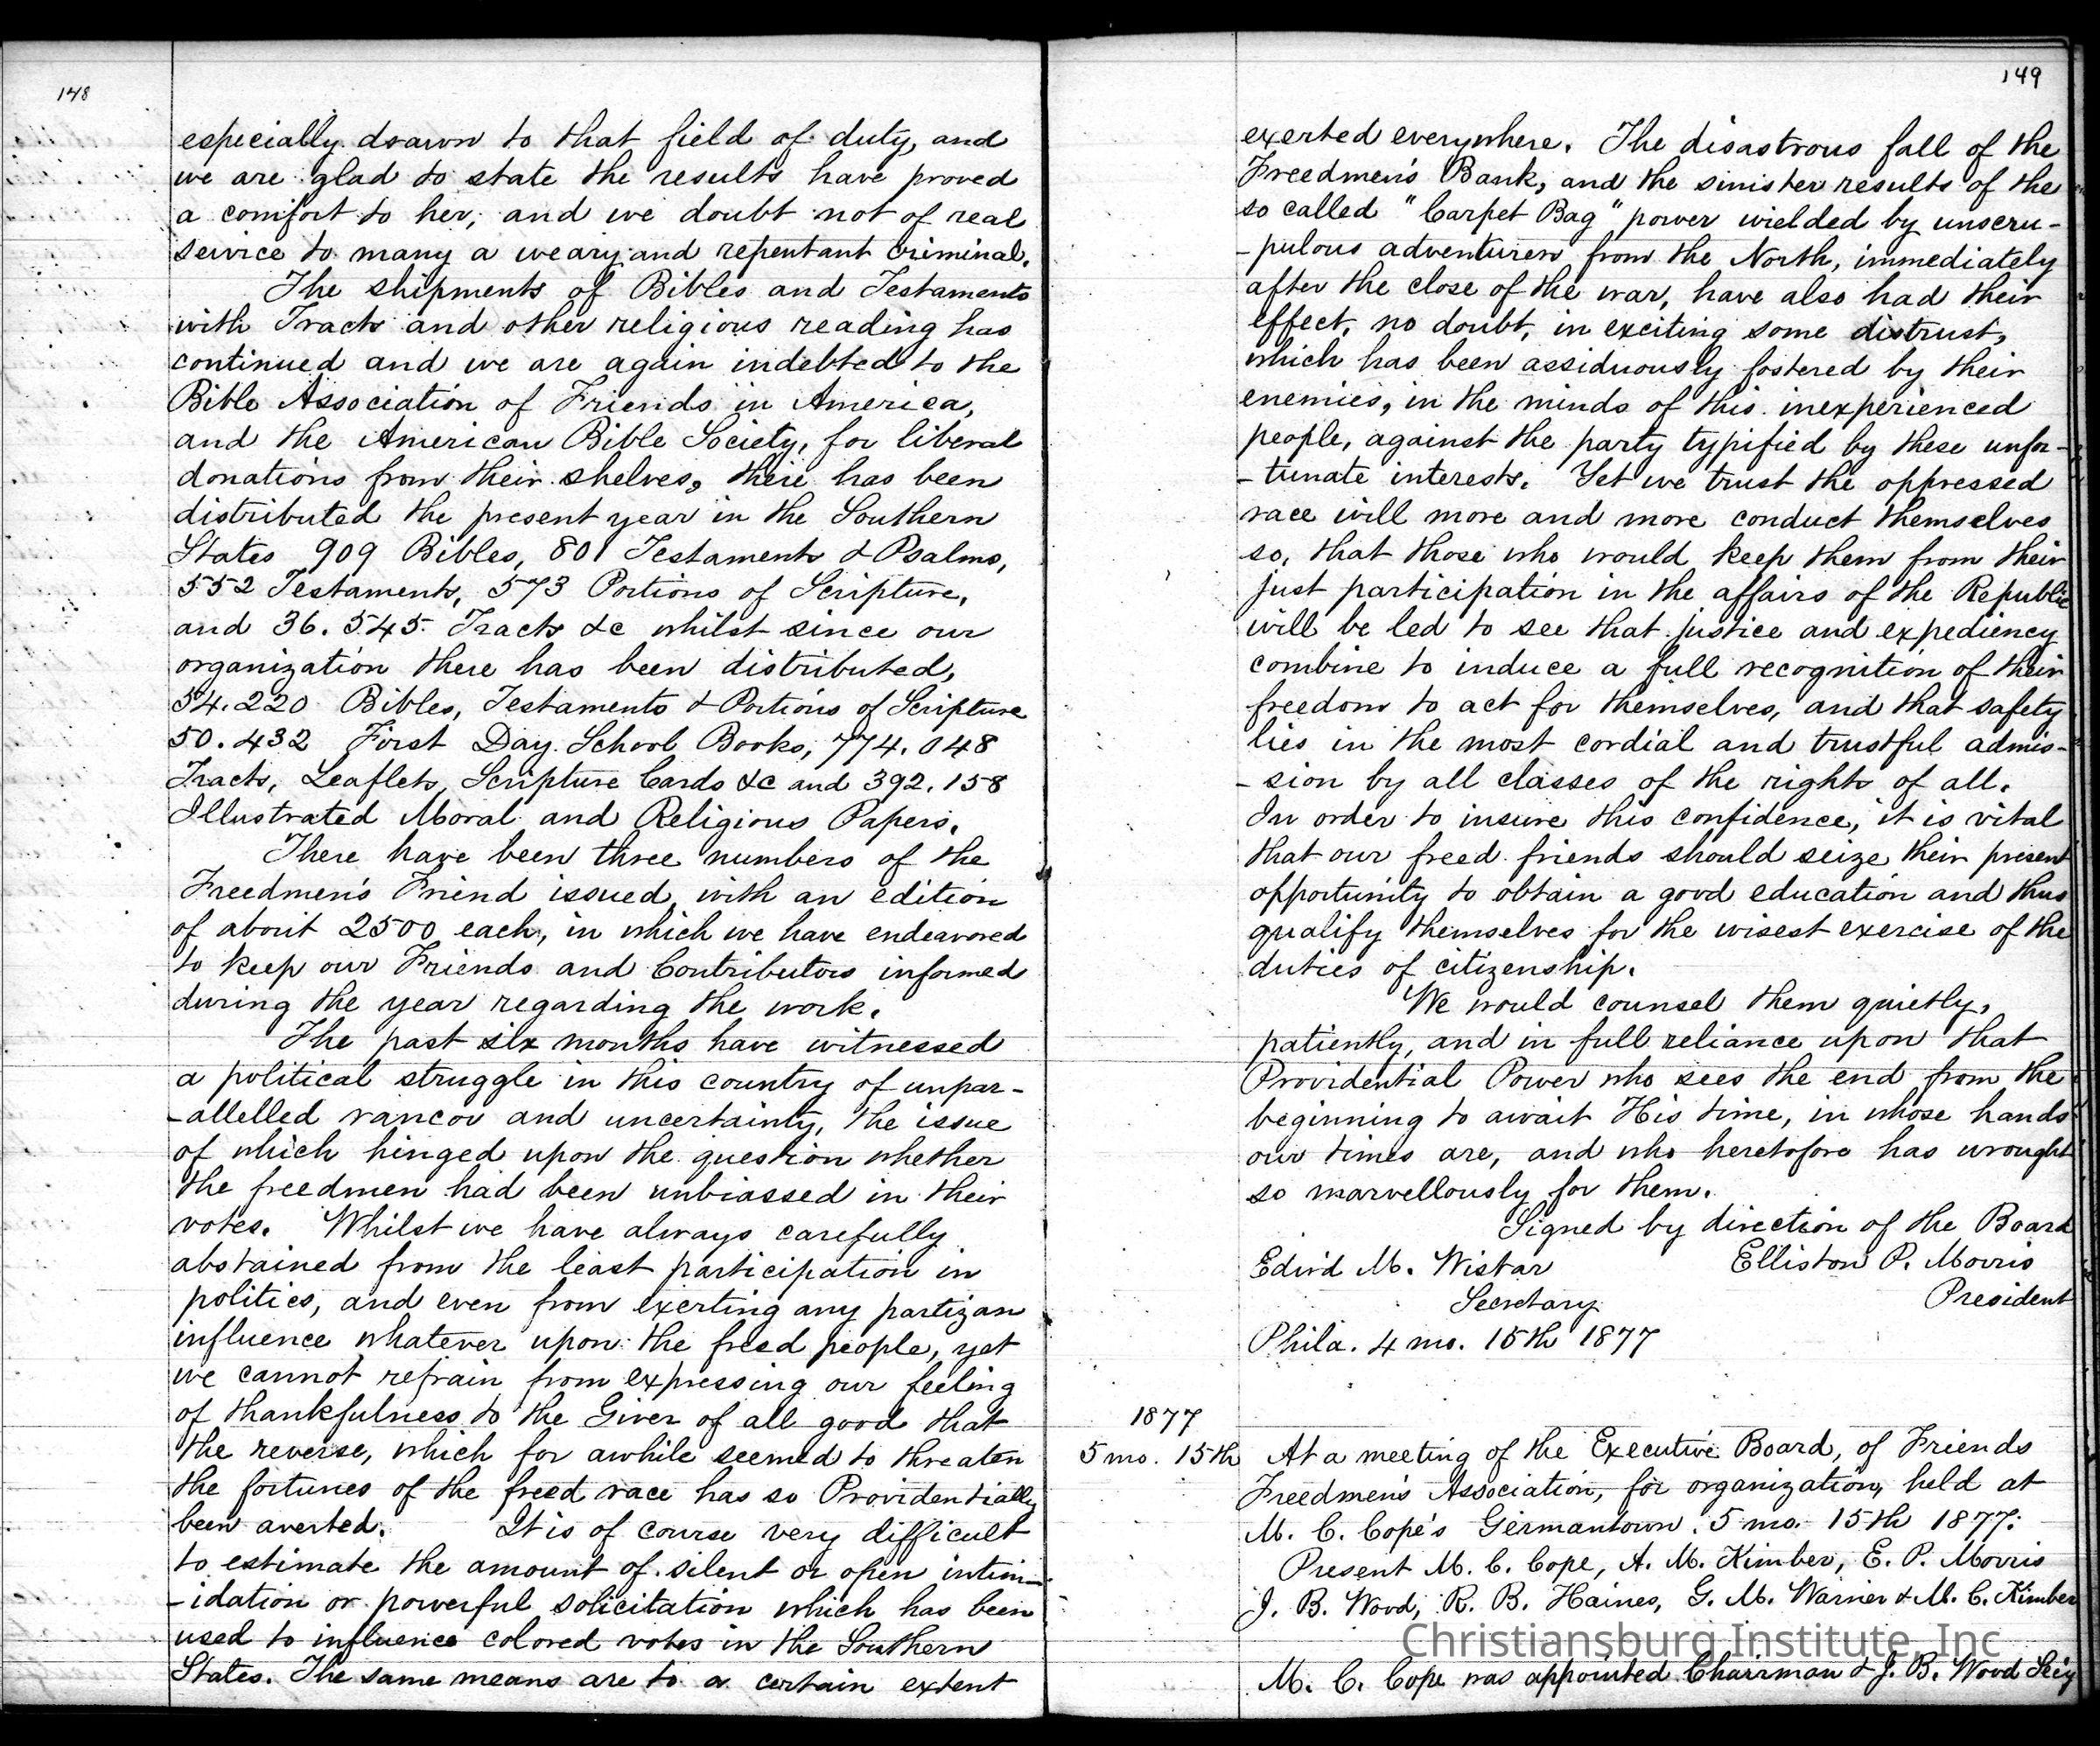 148
especially drawn to that field of duty, and
we are glad to state the results have proved
a comfort to her, and we doubt not of real
service to many a weary and repentant criminal.
The shipments of Bibles and Testaments
with Tracts and other religious reading has
continued and we are again indebted to the
Bible Association of Friends in America,
and the American Bible Society, for liberal
donations from their shelves, there has been
distributed the present year in the Southern
States 909 Bibles, 801 Testaments & Psalms,
552 Testaments, 573 Portions of Scripture,
and 36.545 Tracts &c whilst since our
organization there has been distributed,
54.220 Bibles, Testaments & Portions of Scripture
50.432 First Day School Books, 774.048
Tracts, Leaflets, Scripture Cards &c and 392.158
Illustrated Moral and Religious Papers.
There have been three numbers of the
Freedmen's Friend issued, with an edition
of about 2500 each, in which we have endeavored
to keep our Friends and Contributors informed
during the year regarding the work.
The past six months have witnessed
a political struggle in this country of unpar-
-allelled rancor and uncertainty, the issue
of which hinged upon the question whether
the freedmen had been unbiassed in their
votes. Whilst we have always carefully
abstained from the least participation in
politics, and even from exerting any partizan
influence whatever upon the freed people, yet
we cannot refrain from expressing our feeling
of thankfulness to the Giver of all good that
the reverse, which for awhile seemed to threaten
the fortunes of the freed race has so Providentially
been averted. It is of course very difficult
to estimate the amount of silent or open intim-
-idation or powerful solicitation which has been
used to influence colored votes in the Southern
States. The same means are to a certain extent
149
exerted everywhere. The disastrous fall of the
Freedmen's Bank, and the sinister results of the
so called "Carpet Bag" power wielded by unscru-
-pulous adventurers from the North, immediately
after the close of the war, have also had their
effect, no doubt, in exciting some distrust,
which has been assiduously fostered by their
enemies, in the minds of this inexperienced
people, against the party typified by these unfor-
-tunate interests. Yet we trust the oppressed
race will more and more conduct themselves
so, that those who would keep them from their
just participation in the affairs of the Republic
will be led to see that justice and expediency
combine to induce a full recognition of their
freedom to act for themselves, and that safety
lies in the most cordial and trustful admis-
-sion by all classes of the rights of all.
In order to insure this confidence, it is vital
that our freed friends should seize their present
opportunity to obtain a good education and thus
qualify themselves for the wisest exercise of the
duties of citizenship.
We would counsel them quietly,
patiently, and in full reliance upon that
Providential Power who sees the end from the
beginning to await His time, in whose hands
our times are, and who heretofore has wrought
so marvellously for them.
Signed by direction of the Board
Edwd M. Wistar Elliston P. Morris
Secretary President
Phila. 4 mo. 15th 1877
1877
5 mo. 15th At a meeting of the Executive Board, of Friends
Freedmen's Association, for organization, held at
M. C. Cope's Germantown. 5 mo. 15th 1877.
Present M. C. Cope, A. M. Kimber, E. P. Morris
J. B. Wood, R. B. Haines, G. M. Warner & M. C. Kimber
Christiansburg Institute, Inc
M. C. Cope was appointed Chairman & J. B. Wood Secy